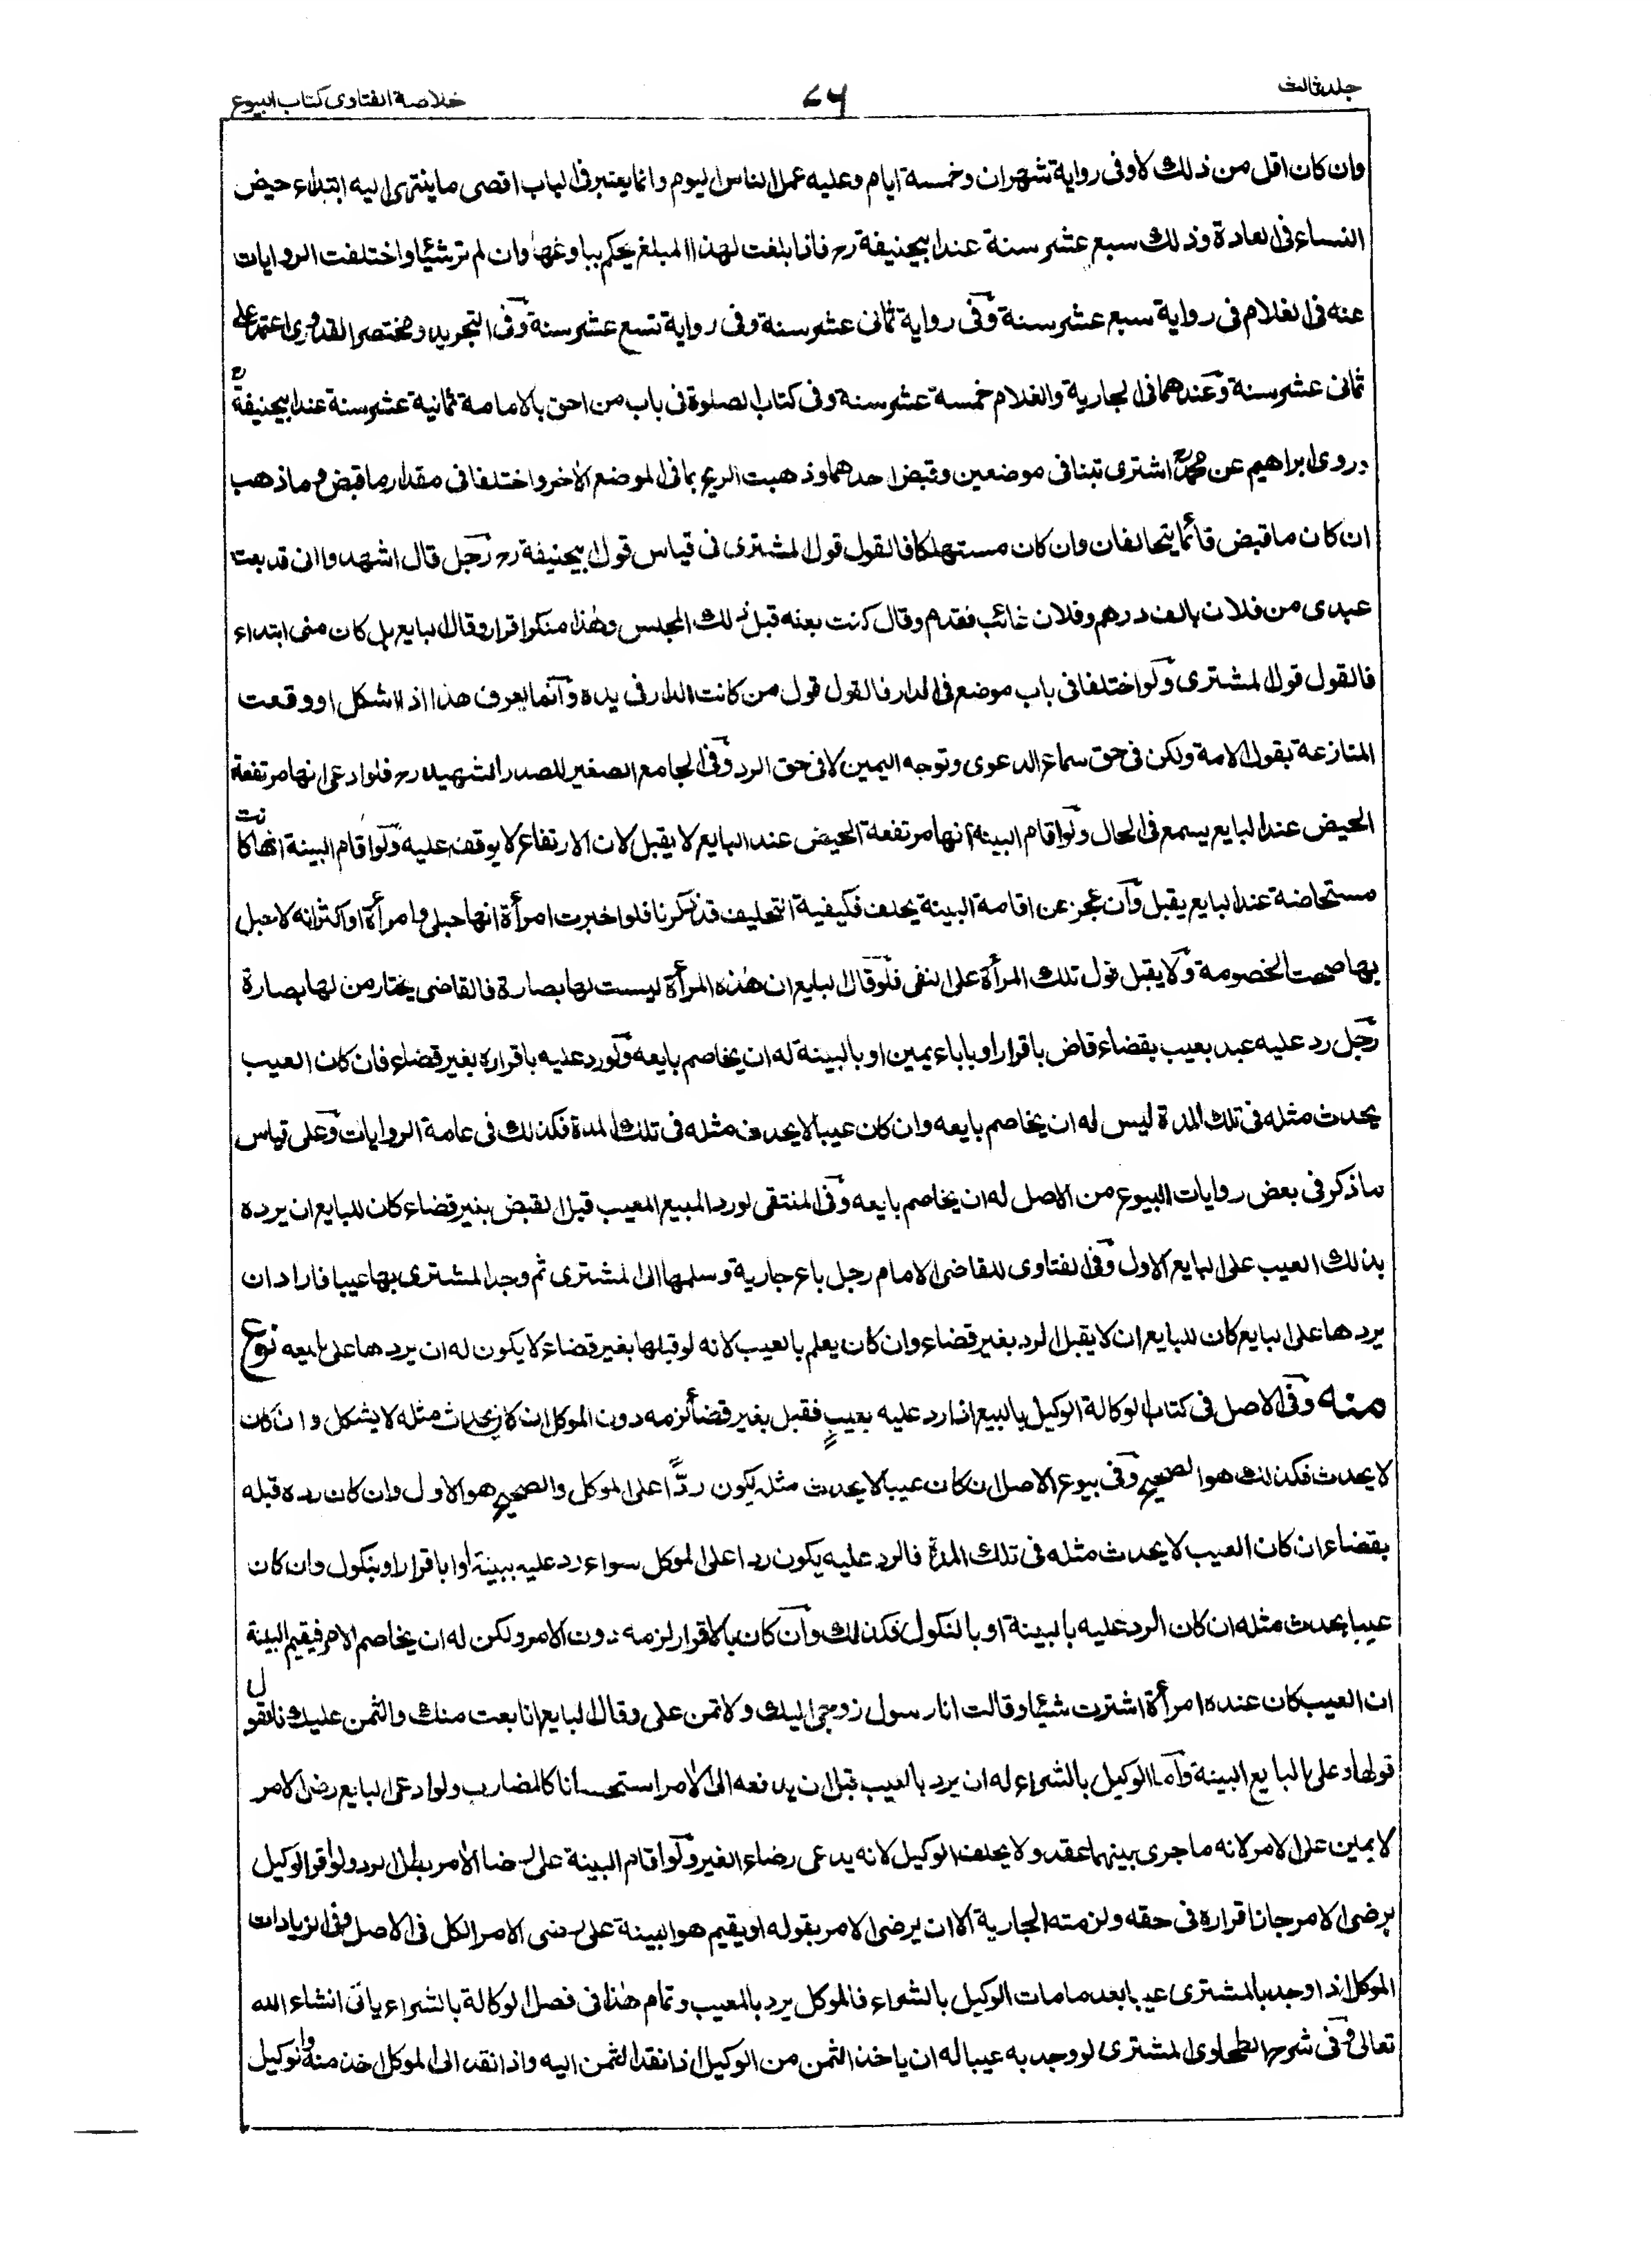 جلد ثالث
٧٦
خلاصة الفتاوى كتاب البيوع
وان كان اقل من ذلك لا وفى رواية شهران وخمسة ايام وعليه عمل الناس اليوم وانما يعتبر فى الباب اقصى ما ينتهى اليه ابتداء حيض
النساء فى العادة وذلك سبع عشر سنة عند ابيحنيفة رح فاذا بلغت لهذا المبلغ يحكم ببلوغها وان لم تر شيئا واختلفت الروايات
عنه فى الغلام فى رواية سبع عشر سنة وفى رواية ثمانى عشر سنة وفى رواية تسع عشر سنة وفى التجريد ومختصر القدورى اعتمد على
ثمانى عشر سنة وعندهما فى الجارية والغلام خمسة عشر سنة وفى كتاب الصلوة فى باب من احق بالامامة ثمانية عشر سنة عند ابيحنيفة رح
وروى ابراهيم عن محمد رح اشترى تبنا فى موضعين وقبض احدهما وذهبت الريح بما فى الموضع الاخر واختلفا فى مقدار ما قبض وما ذهب
ان كان ما قبض قائما يتحالفان وان كان مستهلكا فالقول قول المشترى فى قياس قول ابيحنيفة رح رجل قال اشهدوا انى قد بعت
عبدى من فلان بالف درهم وفلان غائب فقدم وقال كنت بعته قبل ذلك المجلس وهذا منك اقرار وقال البايع بل كان منى ابتداء
فالقول قول المشترى ولو اختلفا فى باب موضع فى الدار فالقول قول من كانت الدار فى يده وانما يعرف هذا اذا اشكل او وقعت
المنازعة بقول الامة ولكن فى حق سماع الدعوى وتوجه اليمين لا فى حق الرد وفى الجامع الصغير للصدر الشهيد رح فلو ادعى انها مرتفعة
الحيض عند البايع يسمع فى الحال ولو اقام البينة انها مرتفعة الحيض عند البايع لا يقبل لان الارتفاع لا يوقف عليه ولو اقام البينة انها كانت
مستحاضة عند البايع يقبل وان عجز عن اقامة البينة يحلف فكيفية التحليف قد ذكرنا فلو اخبرت امرأة انها حبلى وامرأة او اكثر انه لا حبل
بها صحت الخصومة ولا يقبل قول تلك المرأة على النفى فلو قال البايع ان هذه المرأة ليست لها بصارة فالقاضى يختار من لها بصارة
رجل رد عليه عبد بعيب بقضاء قاض باقرار او باباء يمين او بالبينة له ان يخاصم بايعه ولو رد عليه باقراره بغير قضاء فان كان العيب
يحدث مثله فى تلك المدة ليس له ان يخاصم بايعه وان كان عيبا لا يحدث مثله فى تلك المدة فكذلك فى عامة الروايات وعلى قياس
ما ذكر فى بعض روايات البيوع من الاصل له ان يخاصم بايعه وفى المنتقى لو رد المبيع المعيب قبل القبض بغير قضاء كان للبايع ان يرده
بذلك العيب على البايع الاول وفى الفتاوى للقاضى الامام رجل باع جارية وسلمها الى المشترى ثم وجد المشترى بها عيبا فاراد ان
يردها على البايع كان للبايع ان لا يقبل الرد بغير قضاء وان كان يعلم بالعيب لانه لو قبلها بغير قضاء لا يكون له ان يردها على بايعه نوع
منه وفى الاصل فى كتاب الوكالة الوكيل بالبيع اذا رد عليه بعيب فقبل بغير قضأ لزمه دون الموكل ان كان يحدث مثله لا يشكل وان كان
لا يحدث فكذلك هو الصحيح وفى بيوع الاصل ان كان عيبا لا يحدث مثله يكون ردًّا على الموكل والصحيح هو الاول وان كان رده قبله
بقضاء ان كان العيب لا يحدث مثله فى تلك المدة فالرد عليه يكون ردا على الموكل سواء رد عليه ببينة او باقرار او بنكول وان كان
عيبا يحدث مثله ان كان الرد عليه بالبينة او بالنكول فكذلك وان كان بالاقرار لزمه دون الامر ولكن له ان يخاصم الامر فيقيم البينة
ان العيب كان عنده امرأة اشترت شيئا وقالت انا رسول زوجى اليك ولا ثمن على وقال البايع انا بعت منك والثمن عليك فالقول
قولها وعلى البايع البينة واما الوكيل بالشراء له ان يرد بالعيب قبل ان يدفعه الى الامر استحسانا كالمضارب ولو ادعى البايع رضى الامر
لا يمين على الامر لانه ما جرى بينهما عقد ولا يحلف الوكيل لانه يدعى رضاء الغير ولو اقام البينة على رضا الامر بطل الرد ولو اقر الوكيل
برضى الامر جاز اقراره فى حقه ولزمته الجارية الا ان يرضى الامر بقوله او يقيم هو البينة على رضى الامر الكل فى الاصل وفى الزيادات
الموكل اذا وجد بالمشترى عيبا بعد ما مات الوكيل بالشراء فالموكل يرد بالعيب وتمام هذا فى فصل الوكالة بالشراء ياتى انشاء الله
تعالى وفى شرح الطحاوى المشترى لو وجد به عيبا له ان ياخذ الثمن من الوكيل اذا نقد الثمن اليه واذا نقد الى الموكل اخذ منه والوكيل